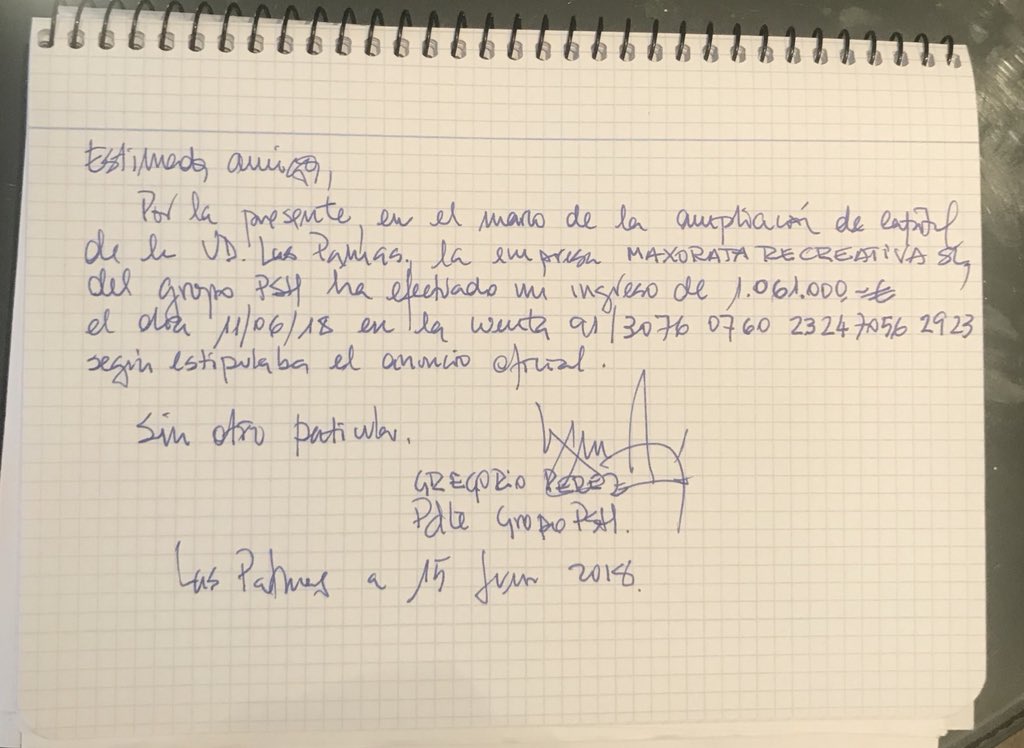 Estimado amigo,
Por la presente, en el marco de la ampliación de capital
de la UD. Las Palmas, la empresa MAXORATA RECREATIVA SL,
del grupo PSH ha efectuado un ingreso de 1.061.000,=€
el día 11/06/18 en la cuenta 91/3076 0760 23247056 2923
según estipulaba el anuncio oficial.
Sin otro paticular.
GREGORIO PEREZ
Pdte Grupo PSH.
Las Palmas a 15 Jun 2018.